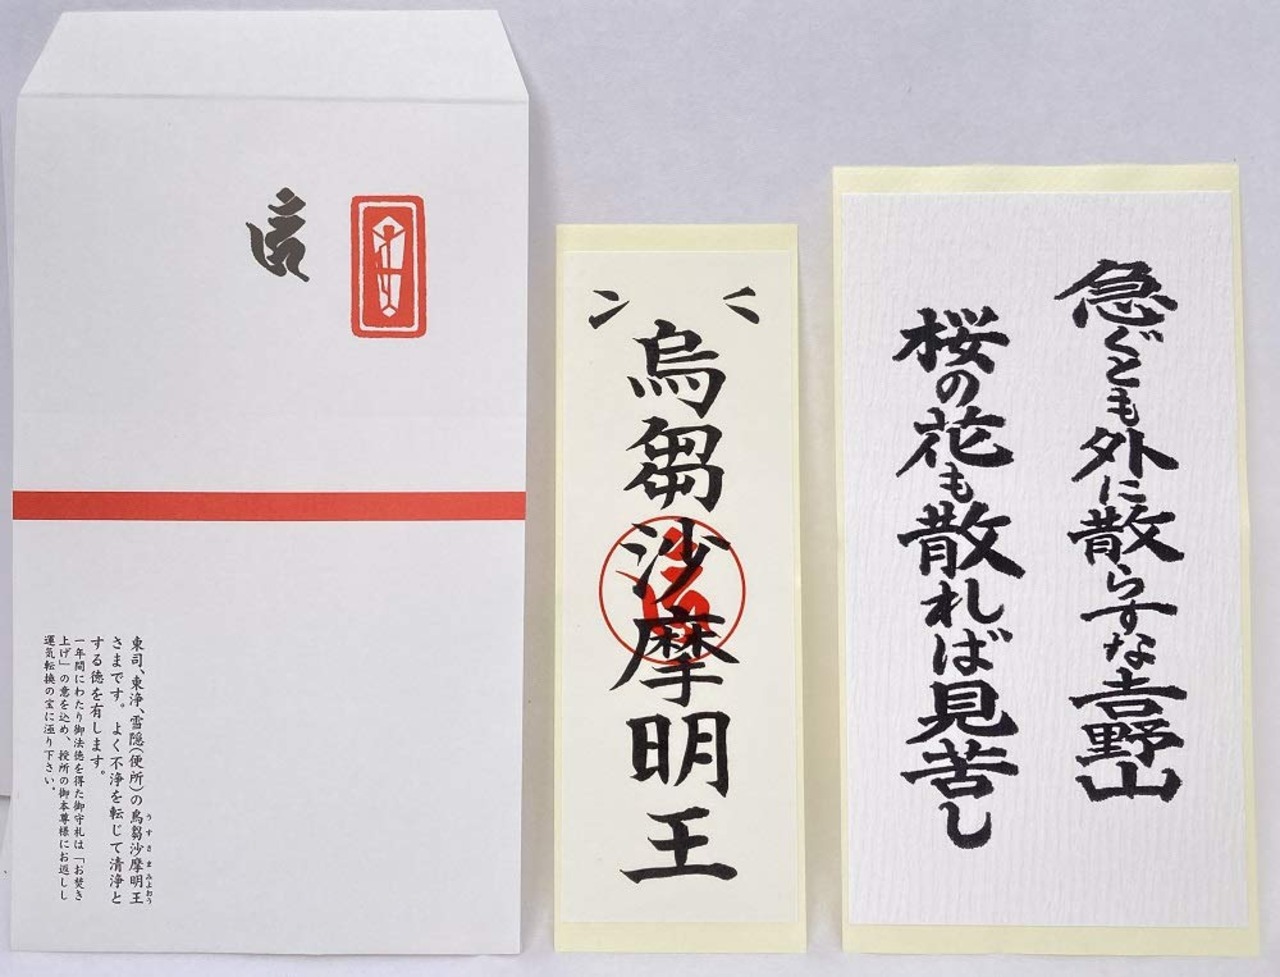 東司、東浄、雪隠(便所)の烏芻沙摩明王
さまです。よく不浄を転じて清浄と
する徳を有します。
一年間にわたり御法徳を得た御守札は「お焚き
上げ」の意を込め、授所の御本尊様にお返しし
運気転換の宝に り下さい。
烏芻沙摩明王
急ぐとも外に散らすな𠮷野山
桜の花も散れば見苦し